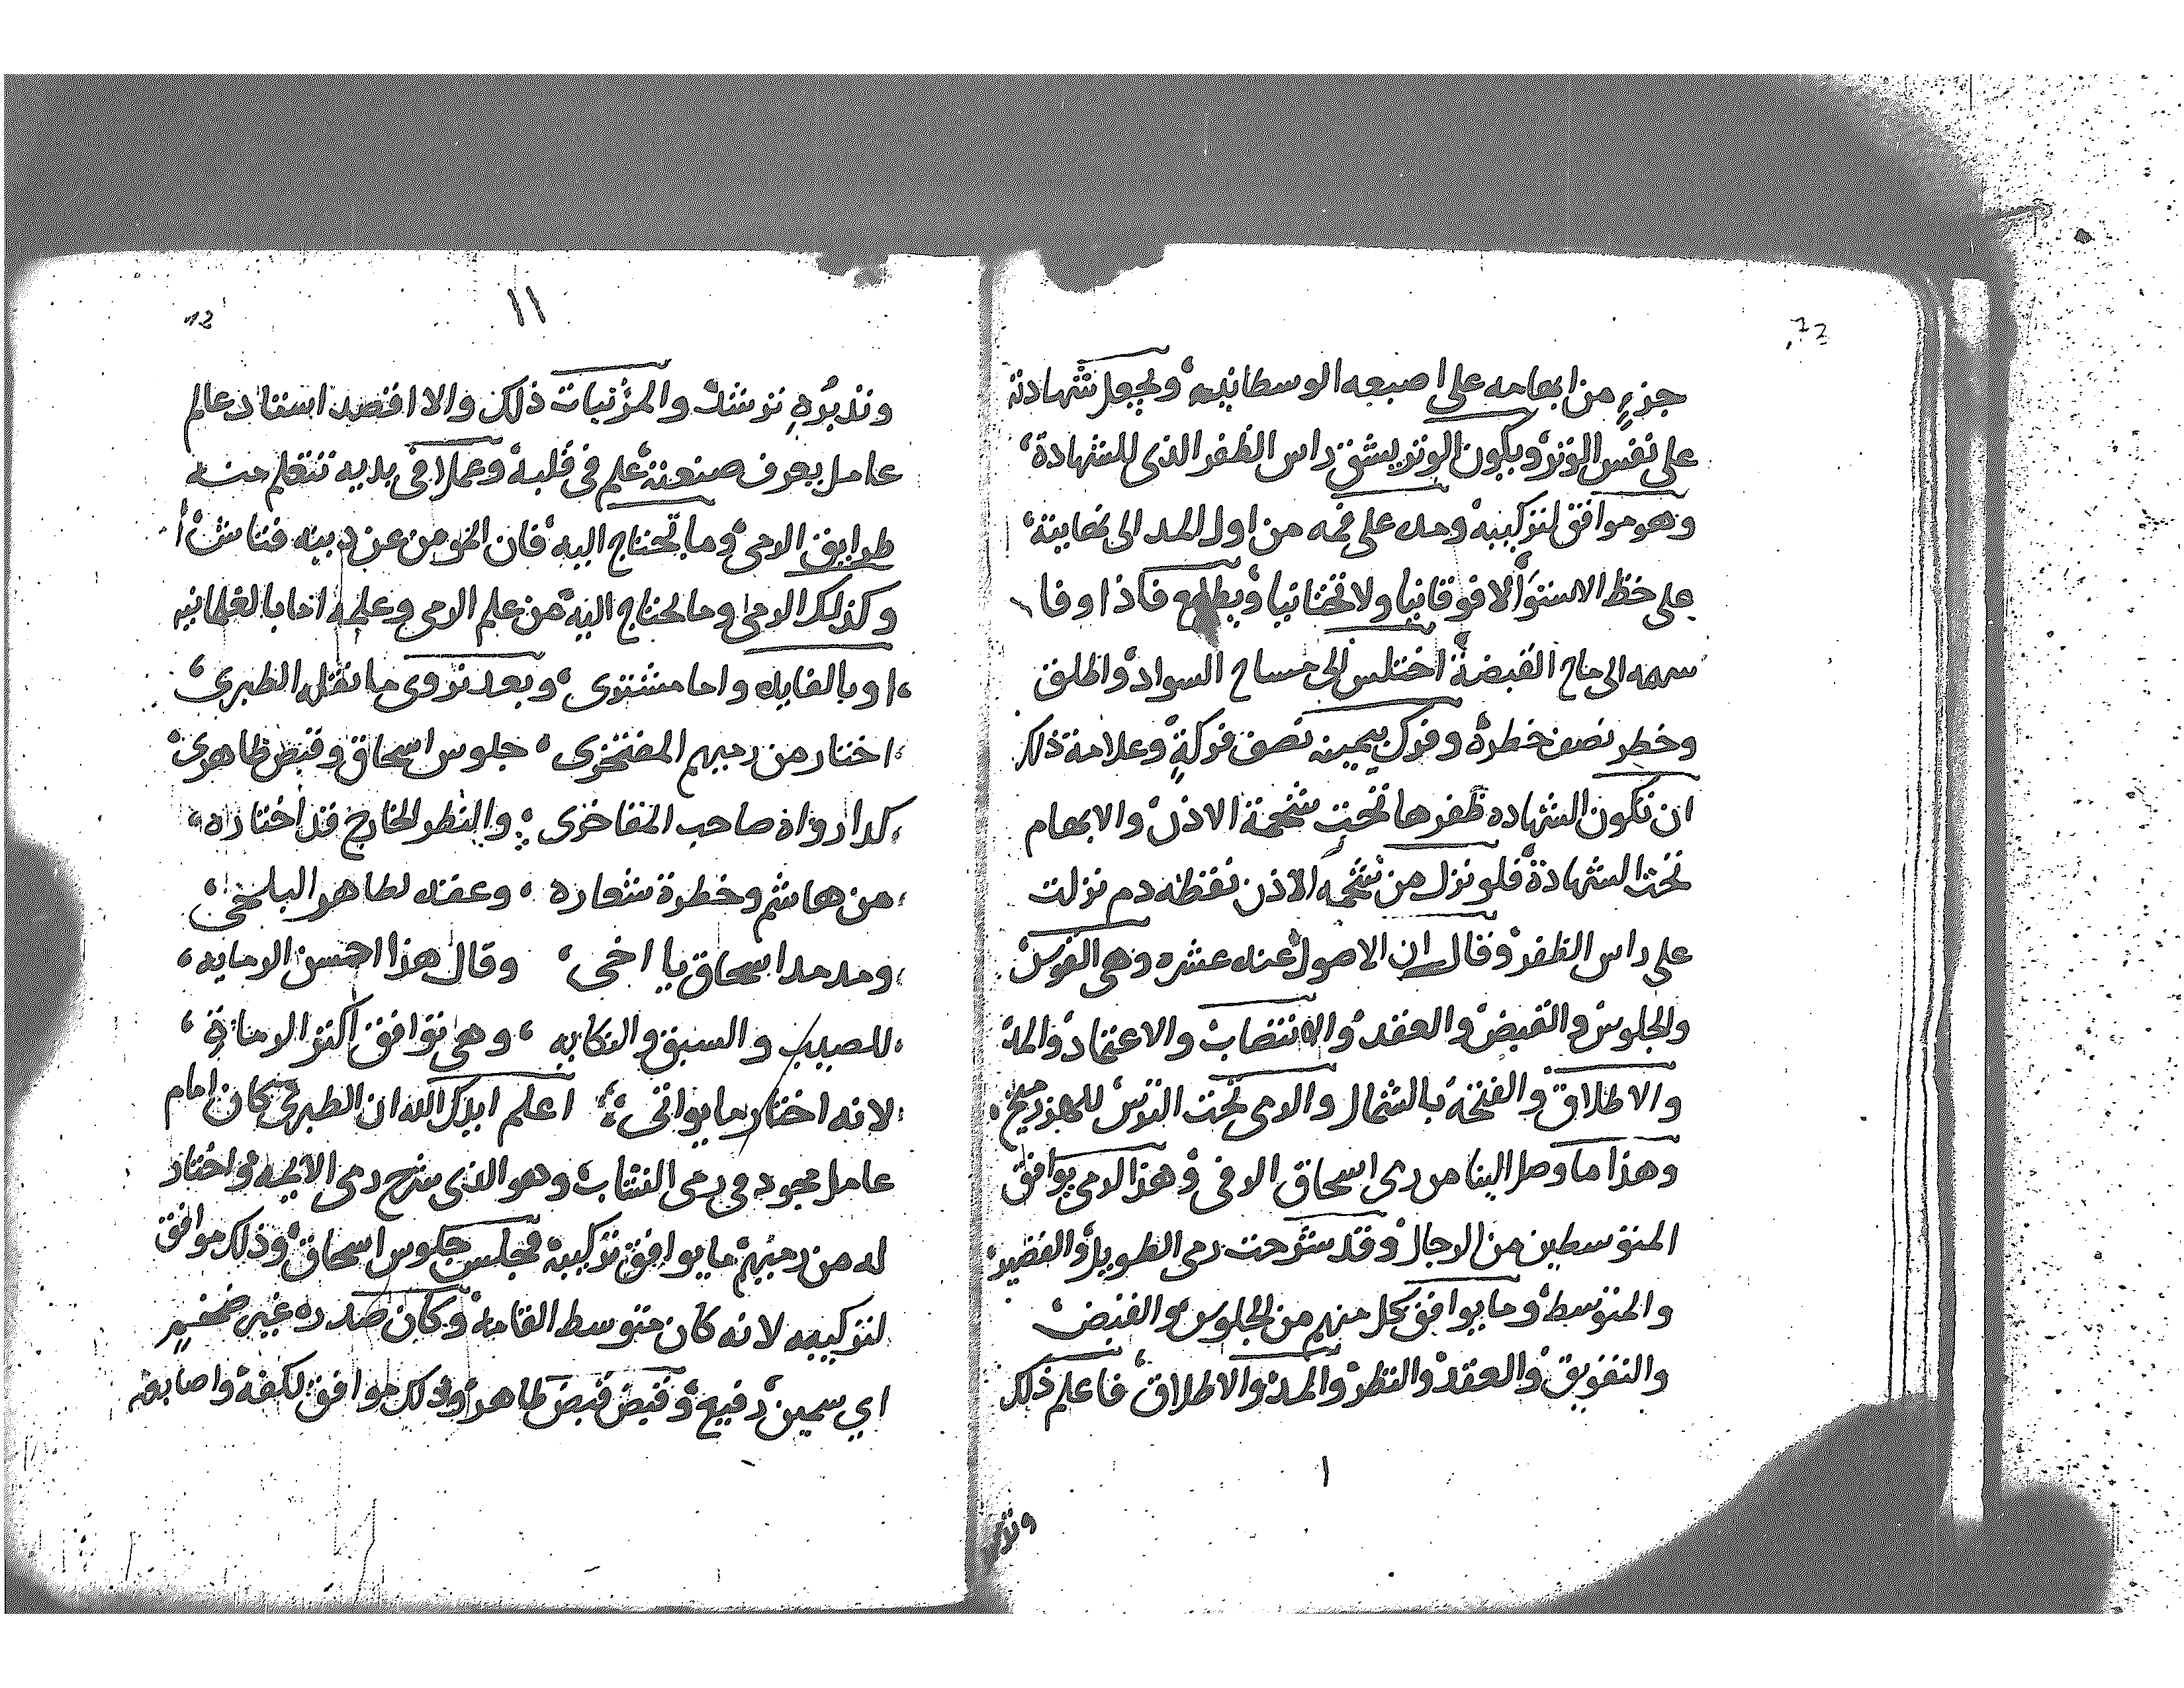 جزء من ابهامه على اصبعه الوسطانيه ويجعل شهادته
على نفس الوتر ويكون الوتر يشق راس الظفر الذى للشهادة
وهو موافق لتركيبه ومده على فمه من اول المد الى نهايته
على خط الاستوا لا فوقانيا ولا تحتانيا ويطلع فاذا وفا
سهمه الى القبضة اختلس الى مساح السواد واطلق
وخطر نصف خطرة وفرك بيمينه نصف فركة وعلامة ذلك
ان تكون الشهاده ظفرها تحت شحمة الاذن والابهام
تحت الشهادة فلو نزل من شحمه الاذن نقطه دم نزلت
على راس الظفر وقال ان الاصول عنده عشره وهى القوس
والجلوس والقبض والعقد والانتصاب والاعتماد والمد
والاطلاق والفتحة بالشمال والرمى تحت الترس
وهذا ما وصل الينا من رمى اسحاق الرفى وهذا الرمى يوافق
المتوسطين من الرجال وقد شرحت رمى الطويل والقصير
والمتوسط وما يوافق بكل منهم من الجلوس والقبض
والتفويق والعقد والنظر والمد والاطلاق فاعلم ذلك
12
١١
وتدبره ترشد والمرتبات ذلك والا اقصد استاد عالم
عامل يعرف صنعته علم فى قلبه وعملا فى يديه تتعلم منه
طرايق الرمى وما تحتاج اليه فان المومن عن دينه فتاش
وكذلك الرمى وما يحتاج اليه من علم الرمى وعلمه اما بالغلمانيه
او بالفايده واما مشترى وبعد نروى ما نقل الطبرى
اختار من رميهم المفتخرى جلوس اسحاق وقبض طاهرى
كدا رواه صاحب المفاخرى والنظر الخارج قد اختاره
من هاشم وخطرة شعاره وعقده لطاهر البلخى
ومد مد اسحاق يا اخى وقال هذا احسن الرمايه
للصيب والسبق والنكايه وهى توافق اكثر الرماة
لانه اختار ما يواتى اعلم ايدك الله ان الطبرى كان امام
عامل مجود فى رمى النشاب وهو الذى شرح رمى الايمه واختار
له من رميهم ما يوافق تركيبه فجلس جلوس اسحاق وذلك موافق
لتركيبه لانه كان متوسط القامة وكان صدره غير ضخم
اي سمين رفيع وقبض قبض طاهر وذلك موافق لكفه واصابعه